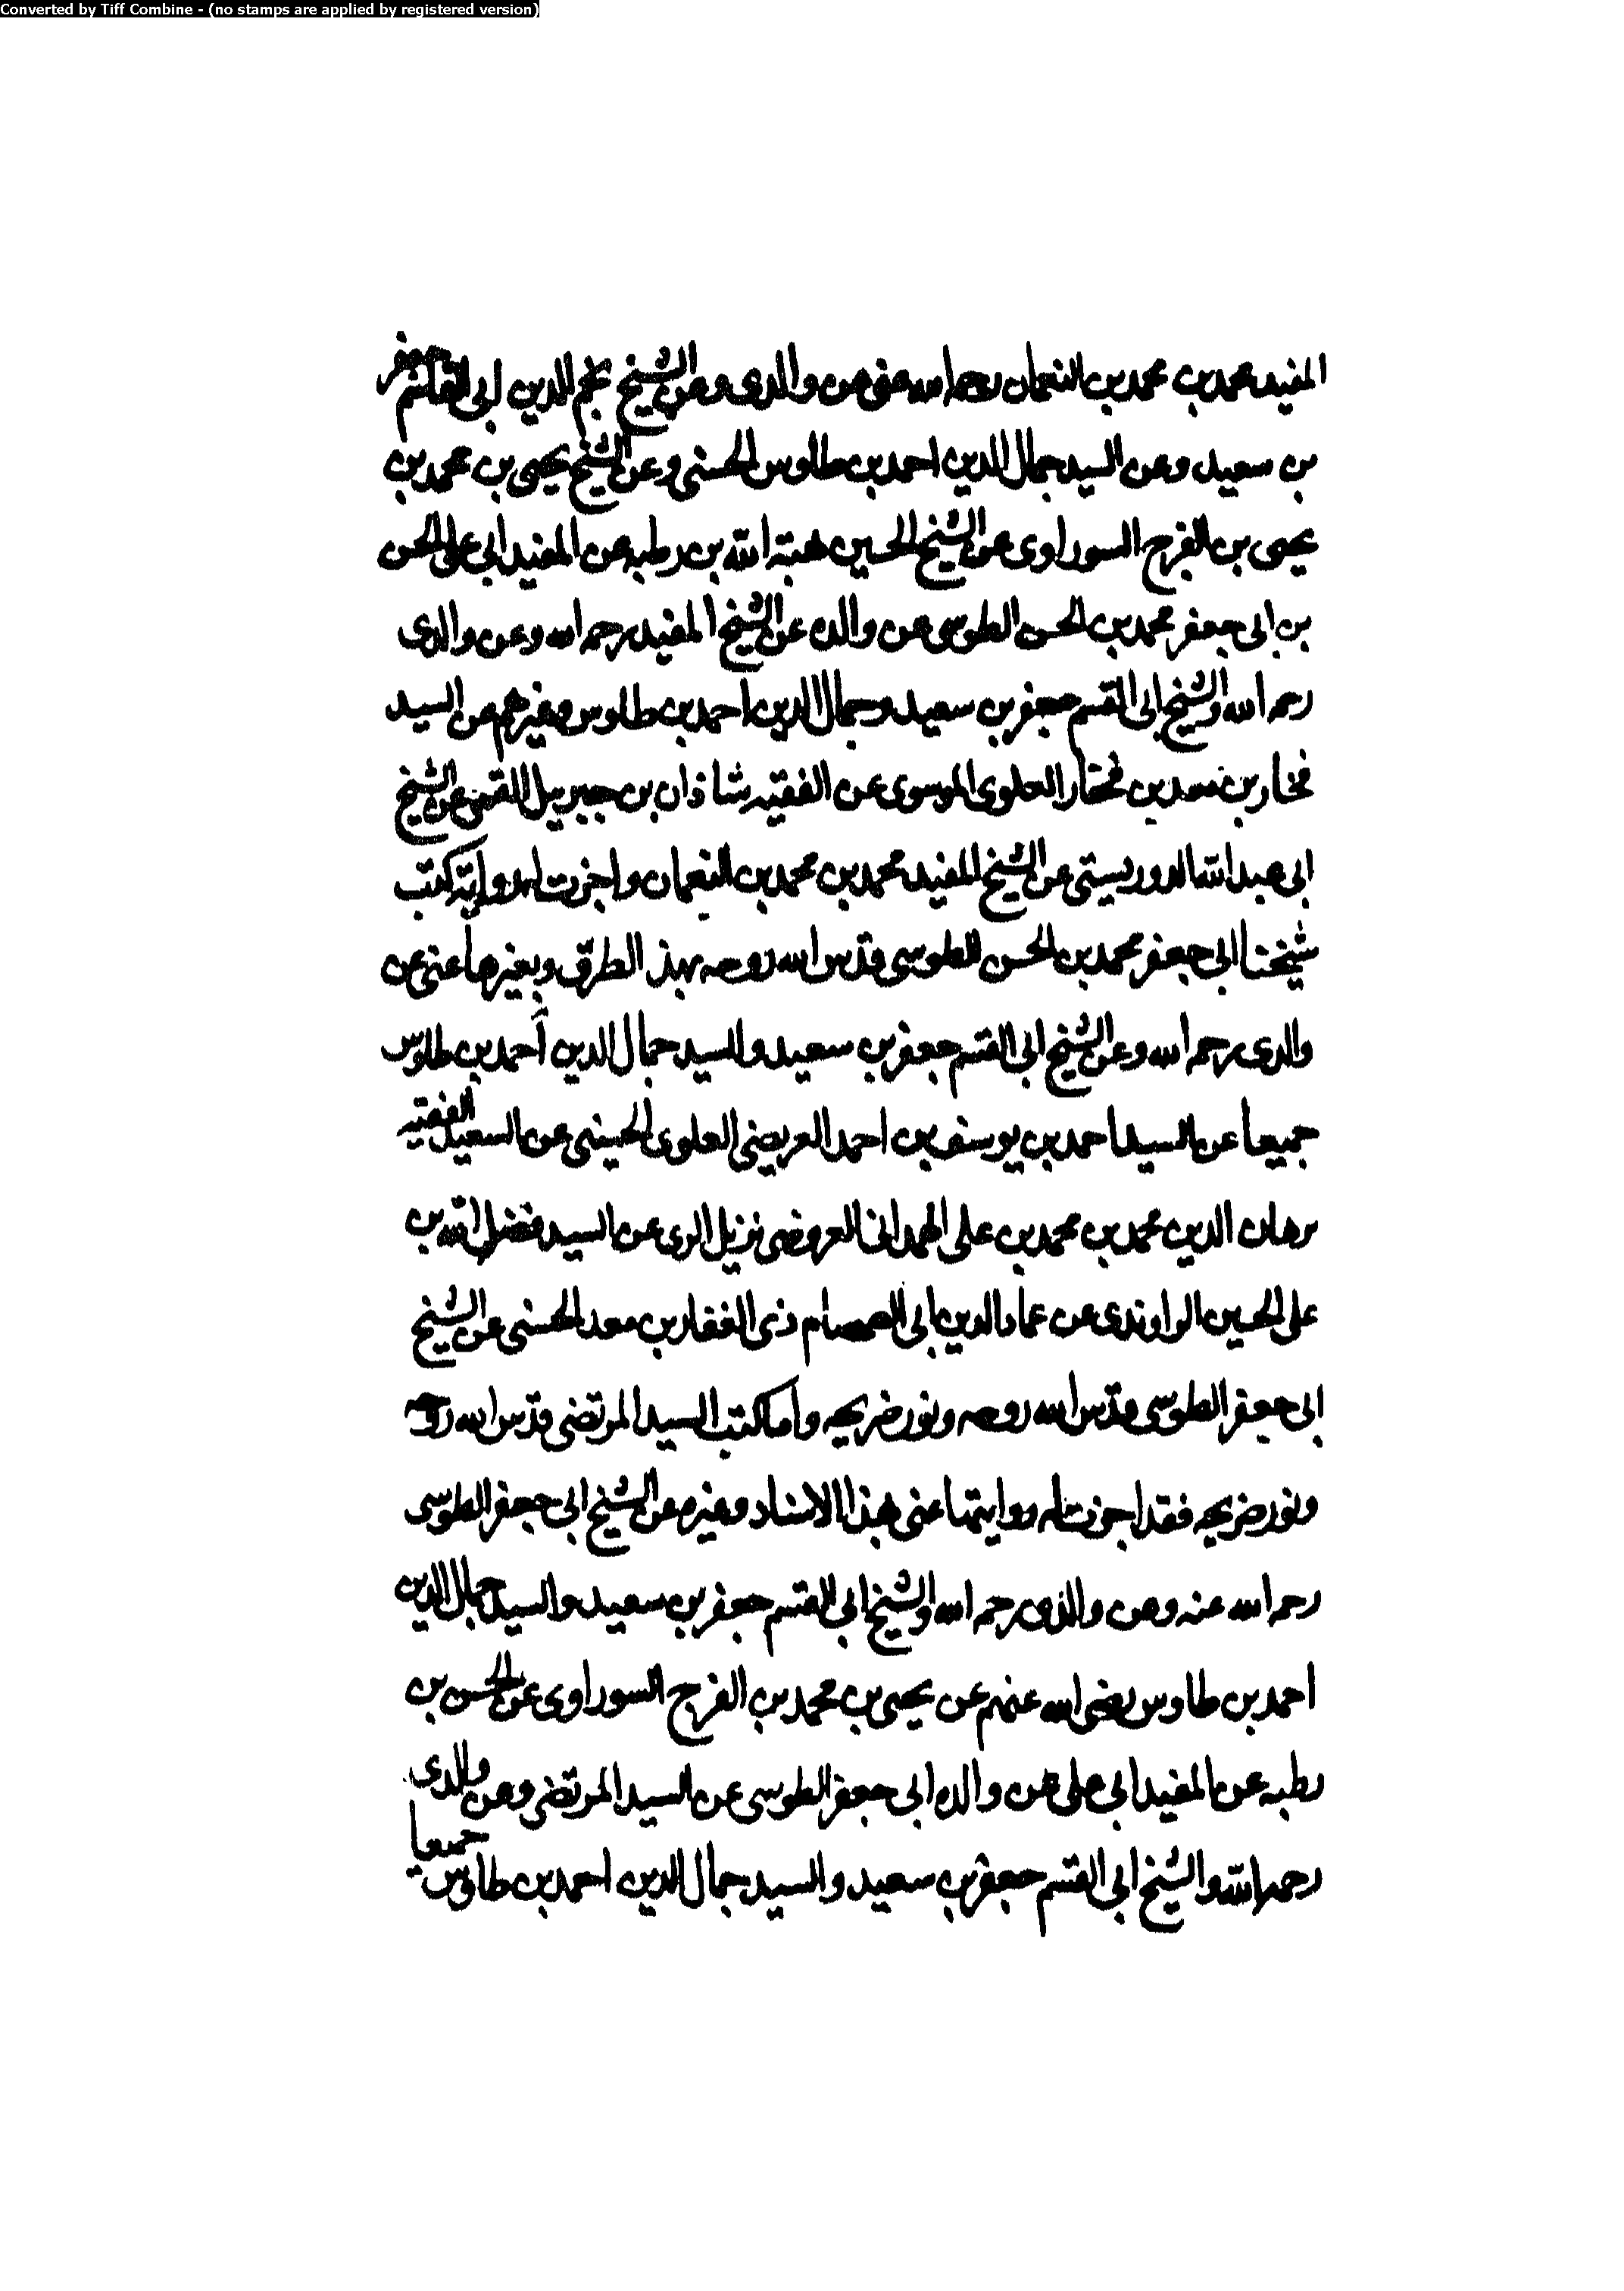 Converted by Tiff Combine - (no stamps are applied by registered version)
المفيد محمد بن محمد بن النعمان رحمه الله عنى عن والدى وعن الشيخ نجم الدين ابى القاسم جعفر
بن سعيد وعن السيد جمال الدين احمد بن طاوس الحسنى وعن الشيخ يحيى بن محمد بن
يحيى بن الفرج السوراوى عن الشيخ الحسين هبة الله بن رطبه عن المفيد ابى على الحسن
بن ابى جعفر محمد بن الحسن الطوسى عن والده عن الشيخ المفيد رحمه الله وعن والدى
رحمه الله والشيخ ابى القسم جعفر بن سعيد وجمال الدين احمد بن طاوس وغيرهم عن السيد
فخار بن معد بن فخار العلوى الموسوى عن الفقيه شاذان بن جبرييل القمى عن الشيخ
ابى عبد الله الدوريستى عن الشيخ المفيد محمد بن محمد بن النعمان واجزت له رواية كتب
شيخنا ابى جعفر محمد بن الحسن الطوسى قدس الله روحه بهذ الطرق وبغيرها عنى عن
والدى رحمه الله وعن الشيخ ابى القسم جعفر بن سعيد والسيد جمال الدين أحمد بن طاوس
جميعا عن السيد احمد بن يوسف بن احمد العريضى العلوى الحسينى عن السعيد الفقيه
برهان الدين محمد بن محمد بن على الهمدانى العروضى نزيل الرى عن السيد فضل الله بن
على الحسين الراوندى عن عماد الدين ابى الصمصام ذى الفقار بن معد الحسنى عن الشيخ
ابى جعفر الطوسى قدس الله روحه ونور ضريحه واما كتب السيد المرتضى قدس الله روحه
ونور ضريحه فقد اجزت له روايتها عنى بهذا الاسناد وغيره عن الشيخ ابى جعفر الطوسى
رحمه الله عنه وعن والدى رحمه الله والشيخ ابى القسم جعفر بن سعيد والسيد جمال الدين
احمد بن طاوس رضى الله عنهم عن يحيى بن محمد بن الفرج السوراوى عن الحسن بن
رطبه عن المفيد ابى على عن والده ابى جعفر الطوسى عن السيد المرتضى وعن والدى
رحمه الله والشيخ ابى القسم جعفر بن سعيد والسيد جمال الدين احمد بن طاوس جميعا